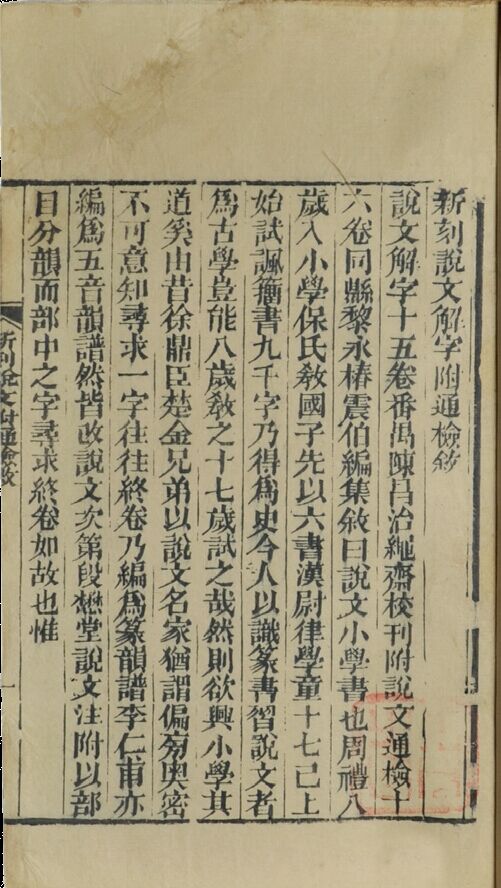 新刻說文解字附通檢敘
說文解字十五卷番禺陳昌治繩齋校刊附說文通檢十
六卷同縣黎永椿震伯編集敘曰說文小學書也周禮八
歲入小學保氏敎國子先以六書漢尉律學童十七已上
始試諷籒書九千字乃得爲史今人以識篆書習說文者
爲古學豈能八歲敎之十七歲試之哉然則欲興小學其
道奚由昔徐鼎臣楚金兄弟以說文名家猶謂偏旁奧密
不可意知尋求一字往往終卷乃編爲篆韻譜李仁甫亦
編爲五音韻譜然皆改說文次第段懋堂說文注附以部
目分韻而部中之字尋求終卷如故也惟
新刊說文附通檢敘
一